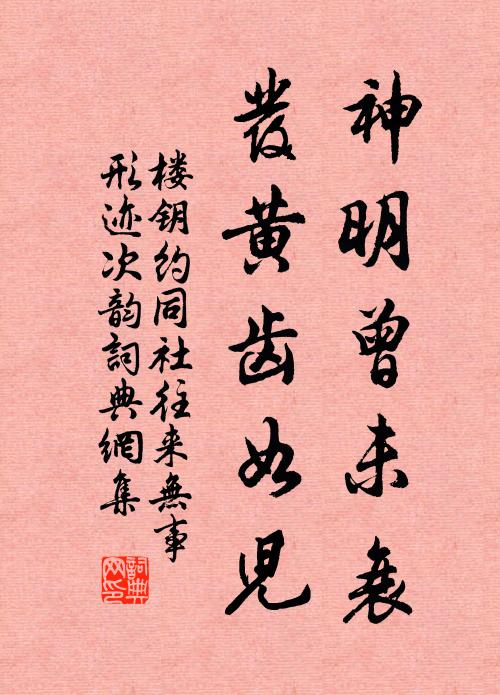 神明曾未衰
发黄齿如兒
楼钥约同社往来無事
形迹次韵詞典網集
詞典网印